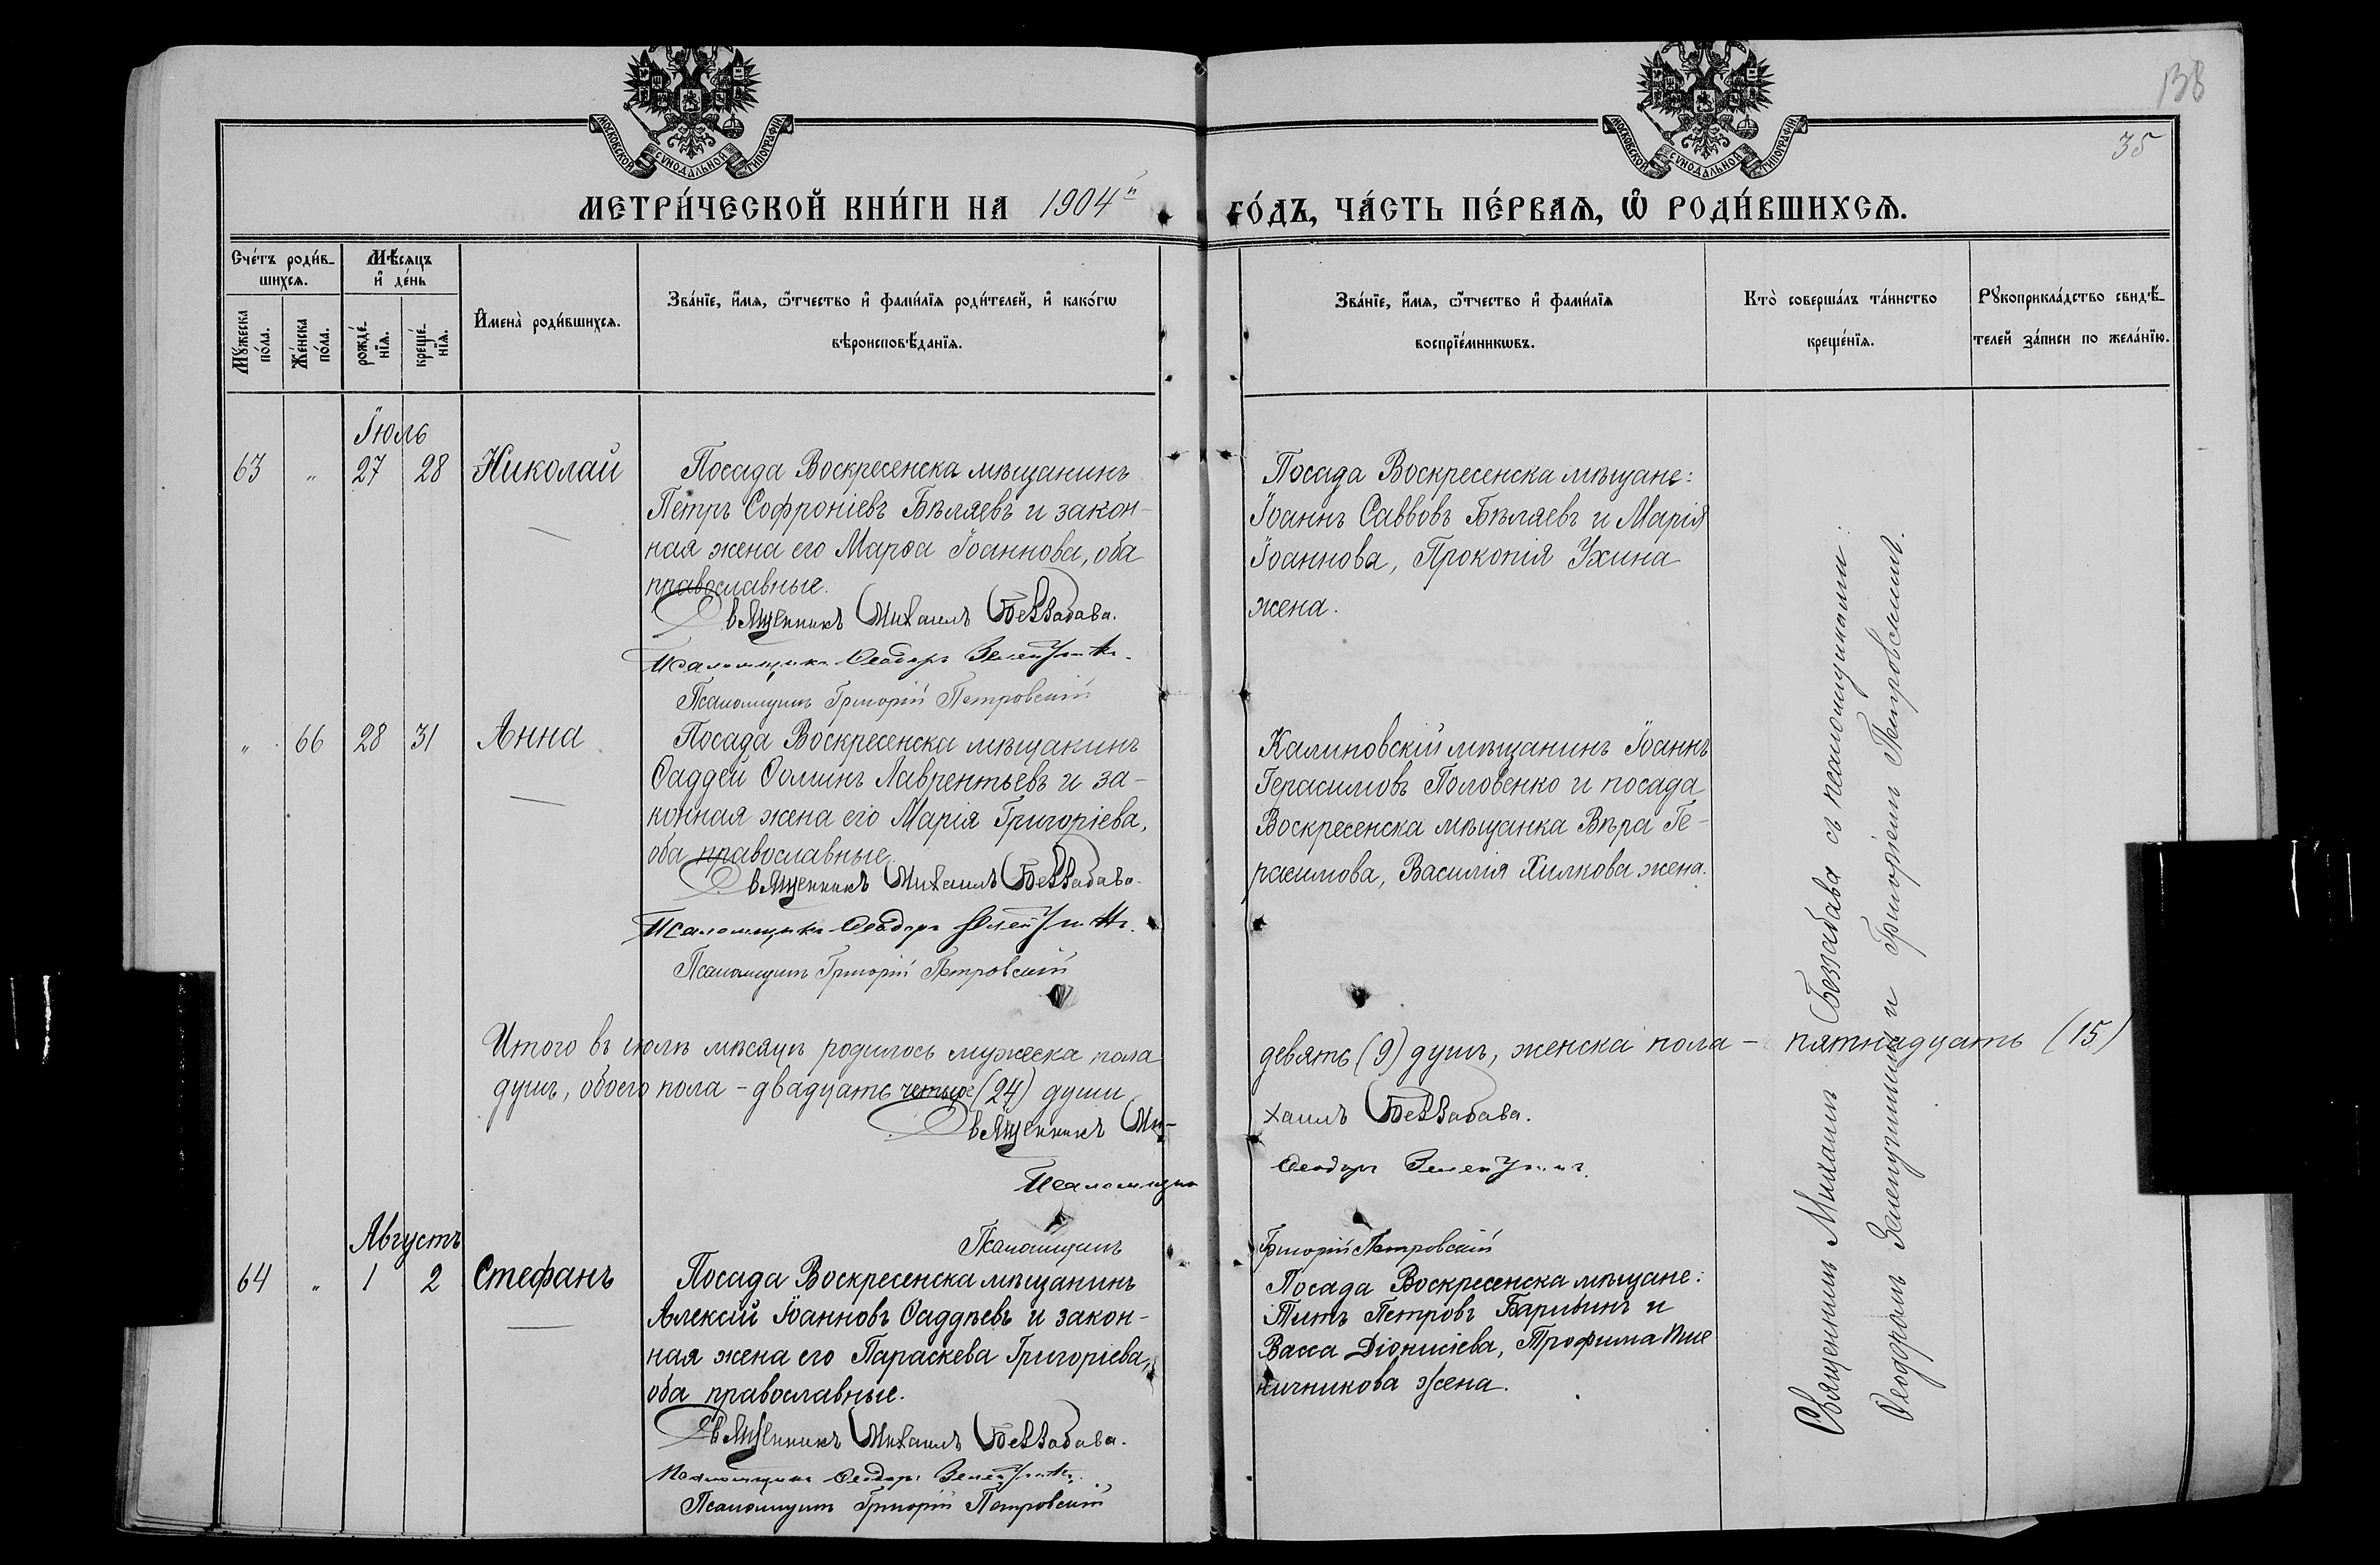 138
35
МОСКОВСКОЙ СѴНОДАЛЬНОЙ ТИПОГРАФІИ
МОСКОВСКОЙ СѴНОДАЛЬНОЙ ТИПОГРАФІИ
МЕТРИ́ЧЕСКОЙ КНИ́ГИ НА 1904й
ГО́ДЪ, ЧА́СТЬ ПЕ́РВАѦ, Ѡ РОДИ́ВШИХСѦ.
Сче́тъ роди́в-
шихсѧ.
Мꙋ́жеска по́ла.
Же́нска по́ла.
Мѣ́сѧцъ
и҆ де́нь
рожде́-нїѧ.
креще́-нїѧ.
И҆мена̀ роди́вшихсѧ.
Зва́нїе, и҆́мѧ, ѻ҆́тчество и҆ фами́лїѧ роди́телей, и҆ како́гѡ
вѣроисповѣ́данїѧ.
Зва́нїе, и҆́мѧ, ѻ҆́тчество и҆ фами́лїѧ
воспрїе́мникѡвъ.
Кто̀ соверша́лъ та́инство
креще́нїѧ.
Рꙋкоприкла́дство свидѣ́-
телей за́писи по жела́нїю.
Іюль
63 " 27 28 Николай
Посада Воскресенска мѣщанинъ
Петръ Софроніевъ Бѣляевъ и закон-
ная жена его Марѳа Іоаннова, оба
православные.
Священникъ Михаилъ Беззабава.
Псаломщикъ Ѳеодоръ
Псаломщикъ Григорій Петровскій
Посада Воскресенска мѣщане:
Іоаннъ Саввовъ Бѣляевъ и Марія
Іоаннова, Прокопія Ухина
жена.
" 66 28 31 Анна
Посада Воскресенска мѣщанинъ
Ѳаддей Ѳоминъ Лаврентьевъ и за-
конная жена его Марія Григоріева,
оба православные.
Священникъ Михаилъ Беззабава.
Псаломщикъ Ѳеодоръ
Псаломщикъ Григорій Петровскій
Калиновскій мѣщанинъ Іоаннъ
Герасимовъ Половенко и посада
Воскресенска мѣщанка Вѣра Ге-
расимова, Василія Хилкова жена.
Итого въ іюлѣ мѣсяцѣ родилось мужеска пола
девять (9) душъ, женска пола – пятнадцать (15)
душъ, обоего пола – двадцать четыре (24) души
Священникъ Ми-
хаилъ Беззабава.
Псаломщикъ
Ѳеодоръ
Псаломщикъ
Григорій Петровскій
Августъ
64 " 1 2 Стефанъ
Посада Воскресенска мѣщанинъ
Алексій Іоанновъ Ѳаддѣевъ и закон-
ная жена его Параскева Григоріева,
оба православные.
Священникъ Михаилъ Беззабава.
Псаломщикъ Ѳеодоръ
Псаломщикъ Григорій Петровскій
Посада Воскресенска мѣщане:
Титъ Петровъ и
Васса Діонисіева, Трофима Пше
ничникова жена.
Священникъ Михаилъ Беззабава съ псаломщиками:
Ѳеодоромъ и Григоріемъ Петровскимъ.